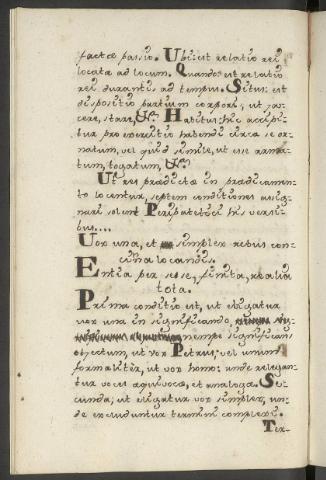 factæ passio. Ubi: est relatio rei
locatæ ad locum. Quando: est relatio
rei durantis ad tempus. Situs: est
dispositio partium corporis, ut ja-
cere, stare, &c. Habitus: hic accipi-
tur pro exercitio habendi circa se or-
natum, vel quid simile, ut esse arma-
tum, togatum, &c.
Ut res prædictæ in prædicamen-
to locentur, septem conditiones assig-
nari solent Peripatetici his versi-
bus....
Vox una, et simplex rebus con-
cinna locandis.
Entia per sese, finita, realia
tota.
Prima conditio est, ut eligatur
vox una in significando,
nempe significans
objectum, ut vox Petrus; vel unum
formaliter, ut vox homo: unde relegan-
tur voces æquivocæ, et analogæ. Se-
cunda; ut eligatur vox simplex, un-
de excluduntur termini complexi.
Ter-